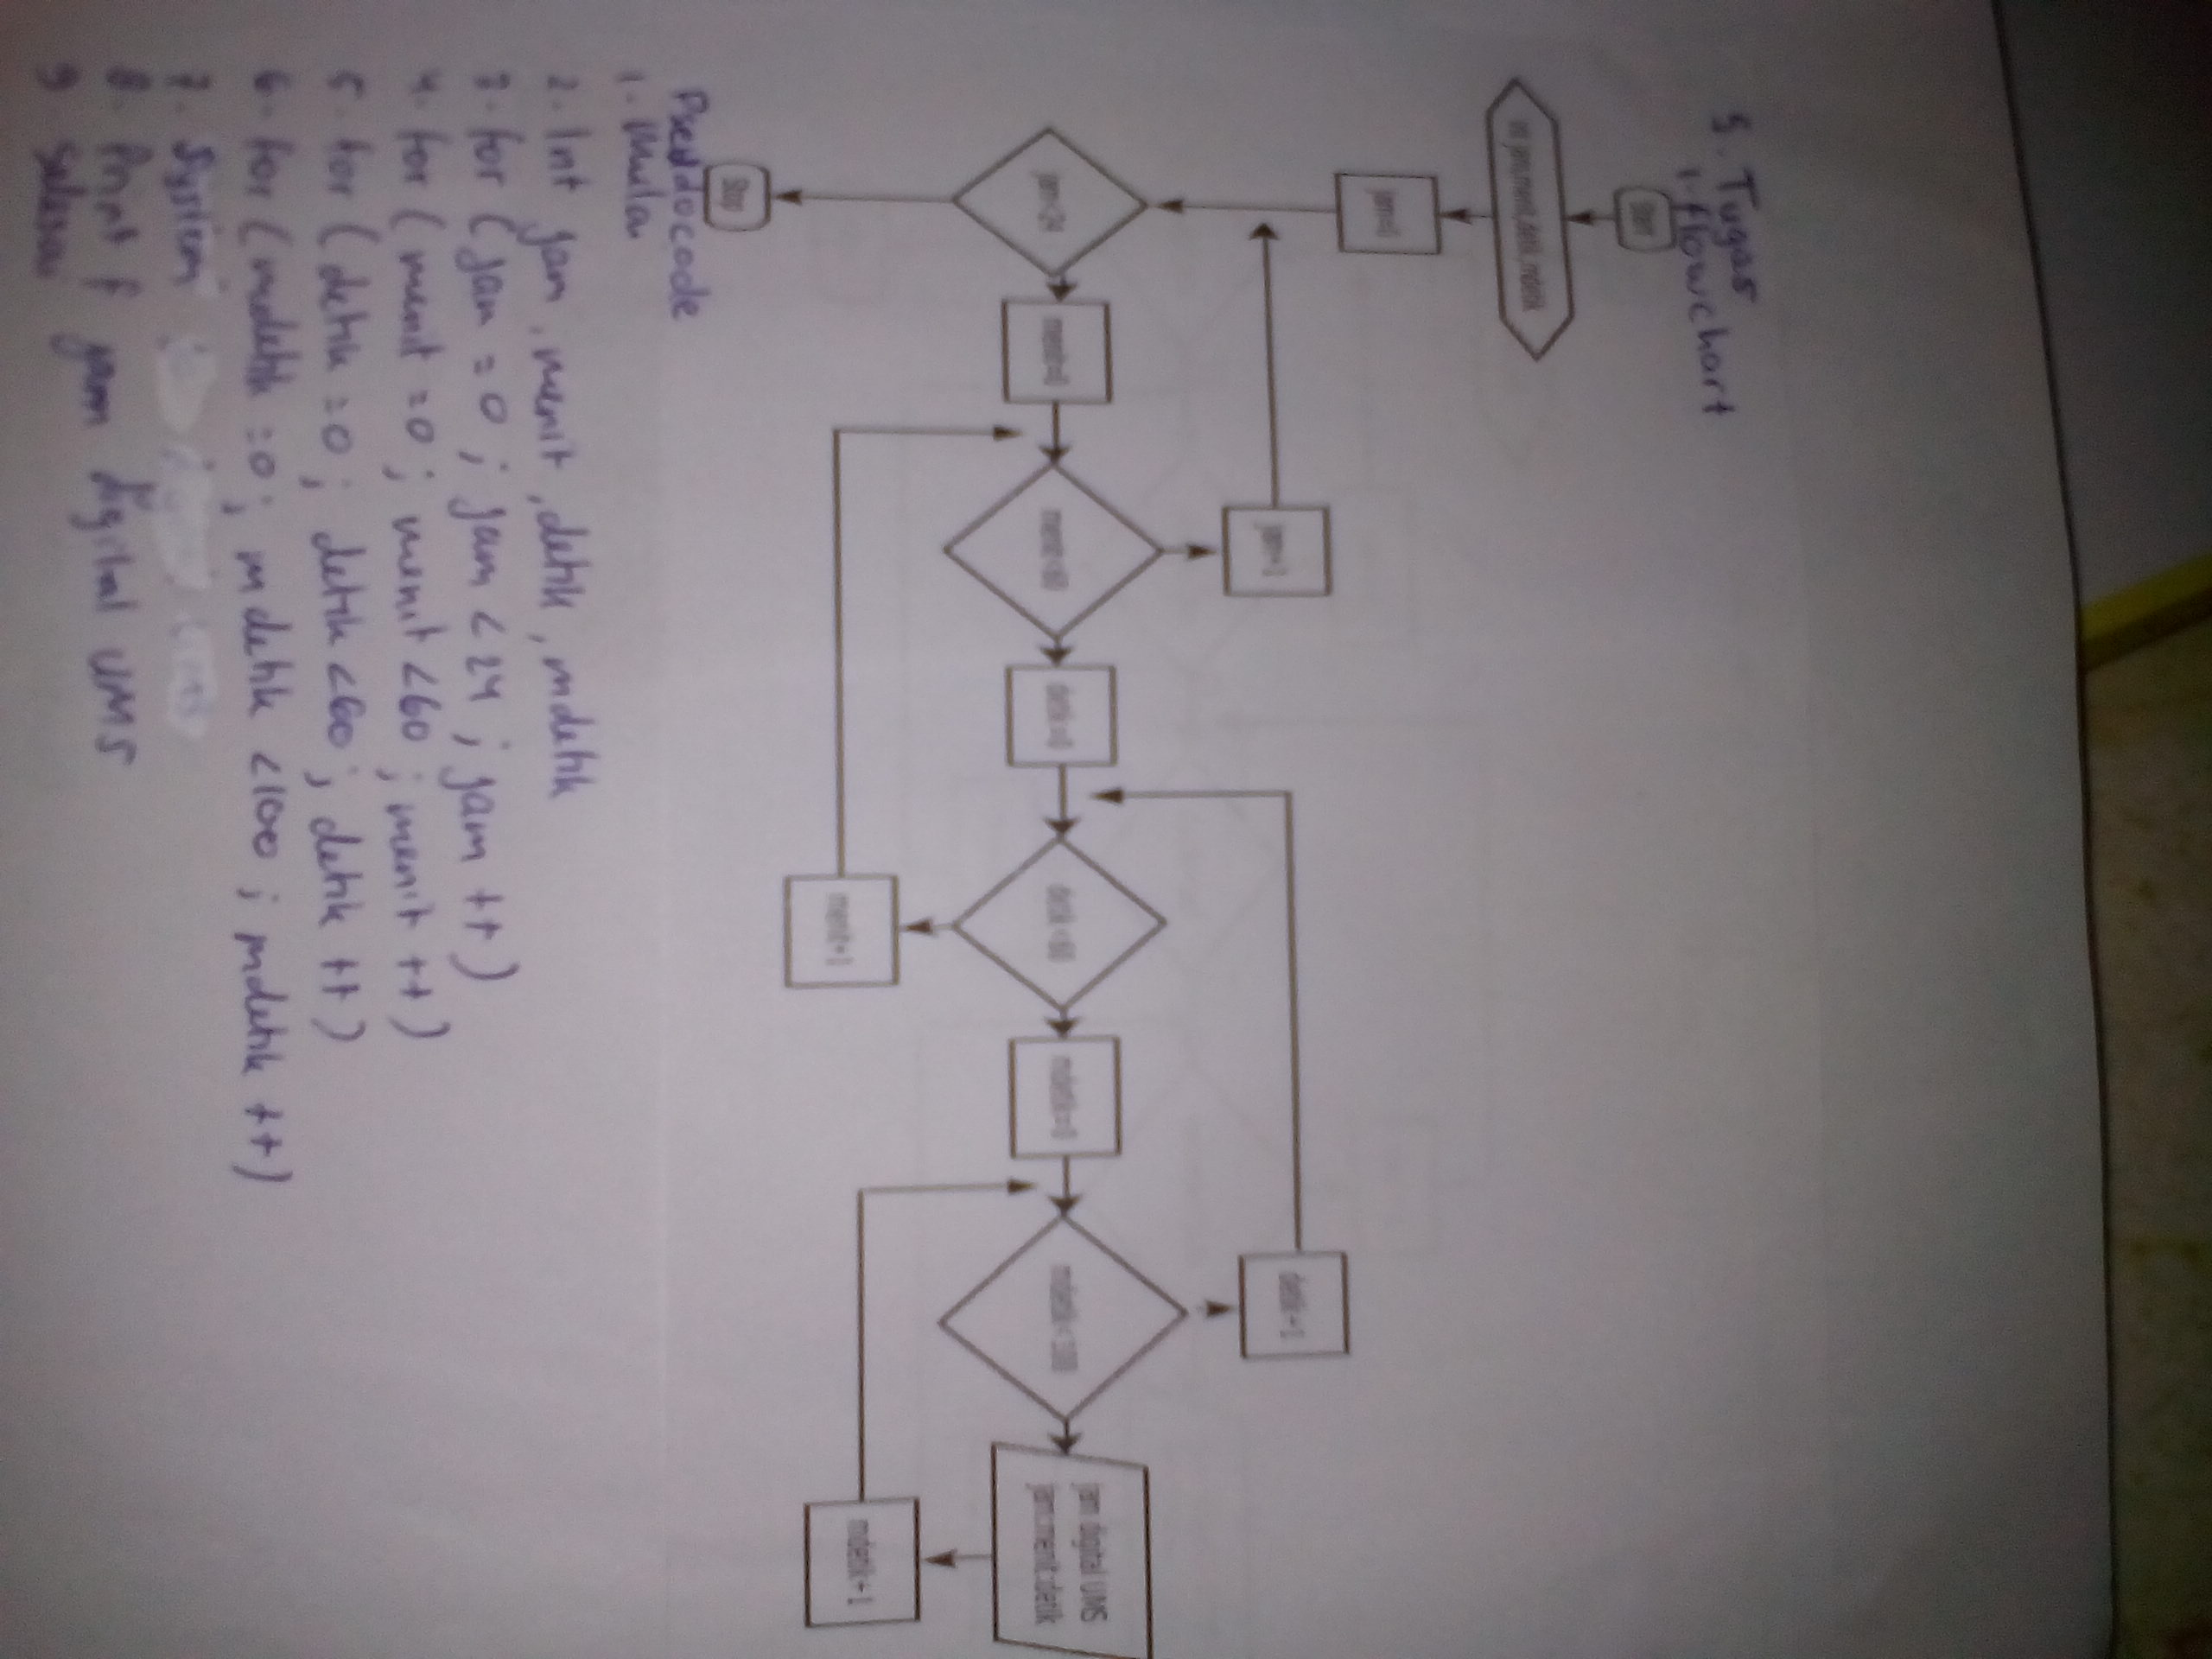 5. Tugas
1. flowchart
Start
int jam,menit,detik,mdetik
jam=0
jam<24
Stop
menit=0
jam+1
menit<60
detik=0
detik<60
menit+1
mdetik=0
detik+1
mdetik<100
jam digital UMS
jam:menit:detik
mdetik+1
Pseudocode
1. Mulai
2. Int jam, menit, detik, mdetik
3. for (jam = 0 ; jam < 24 ; jam ++)
4. for (menit = 0 ; menit < 60 ; menit ++)
5. for (detik = 0 ; detik < 60 ; detik ++)
6. for (mdetik = 0 ; mdetik < 100 ; mdetik ++)
7. System
8. Print f jam digital UMS
9. selesai